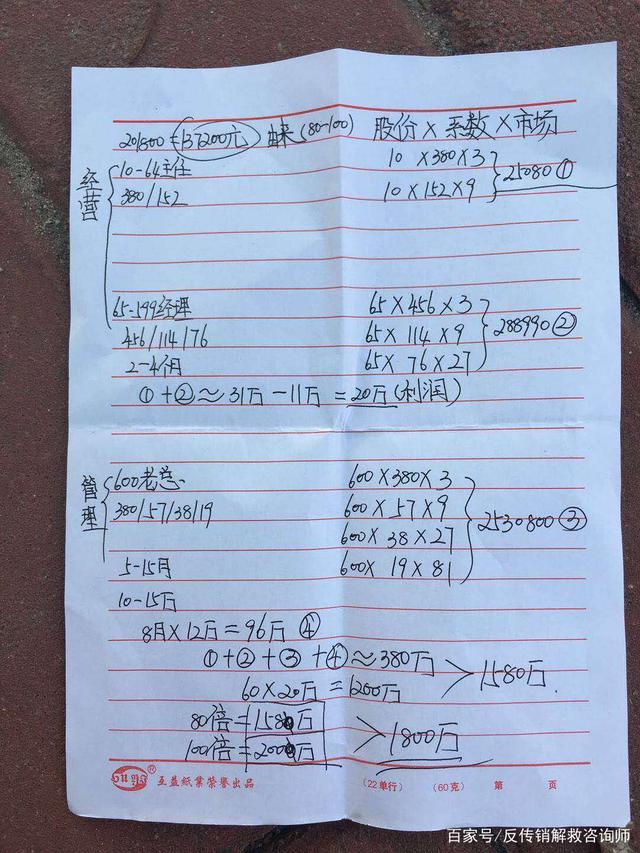 201800=137200元 由来(80-100) 股份×系数×市场
经营
10-64主任 10×380×3
380/152 10×152×9 25080①
65-599经理 65×456×3
456/114/76 65×114×9 288990②
2-4个月 65×76×27
①+②≈31万-11万=20万(利润)
管理
600老总 600×380×3
380/57/38/19 600×57×9
600×38×27 2530800③
5-15月 600×19×81
10-15万
8月×12万=96万④
①+②+③+④≈380万
60×20万=1200万 >1580万
80倍=1580万
100倍=2000万 >1800万
® 至益紙業榮譽出品 (22单行) (60克) 第 页
百家号/反传销解救咨询师